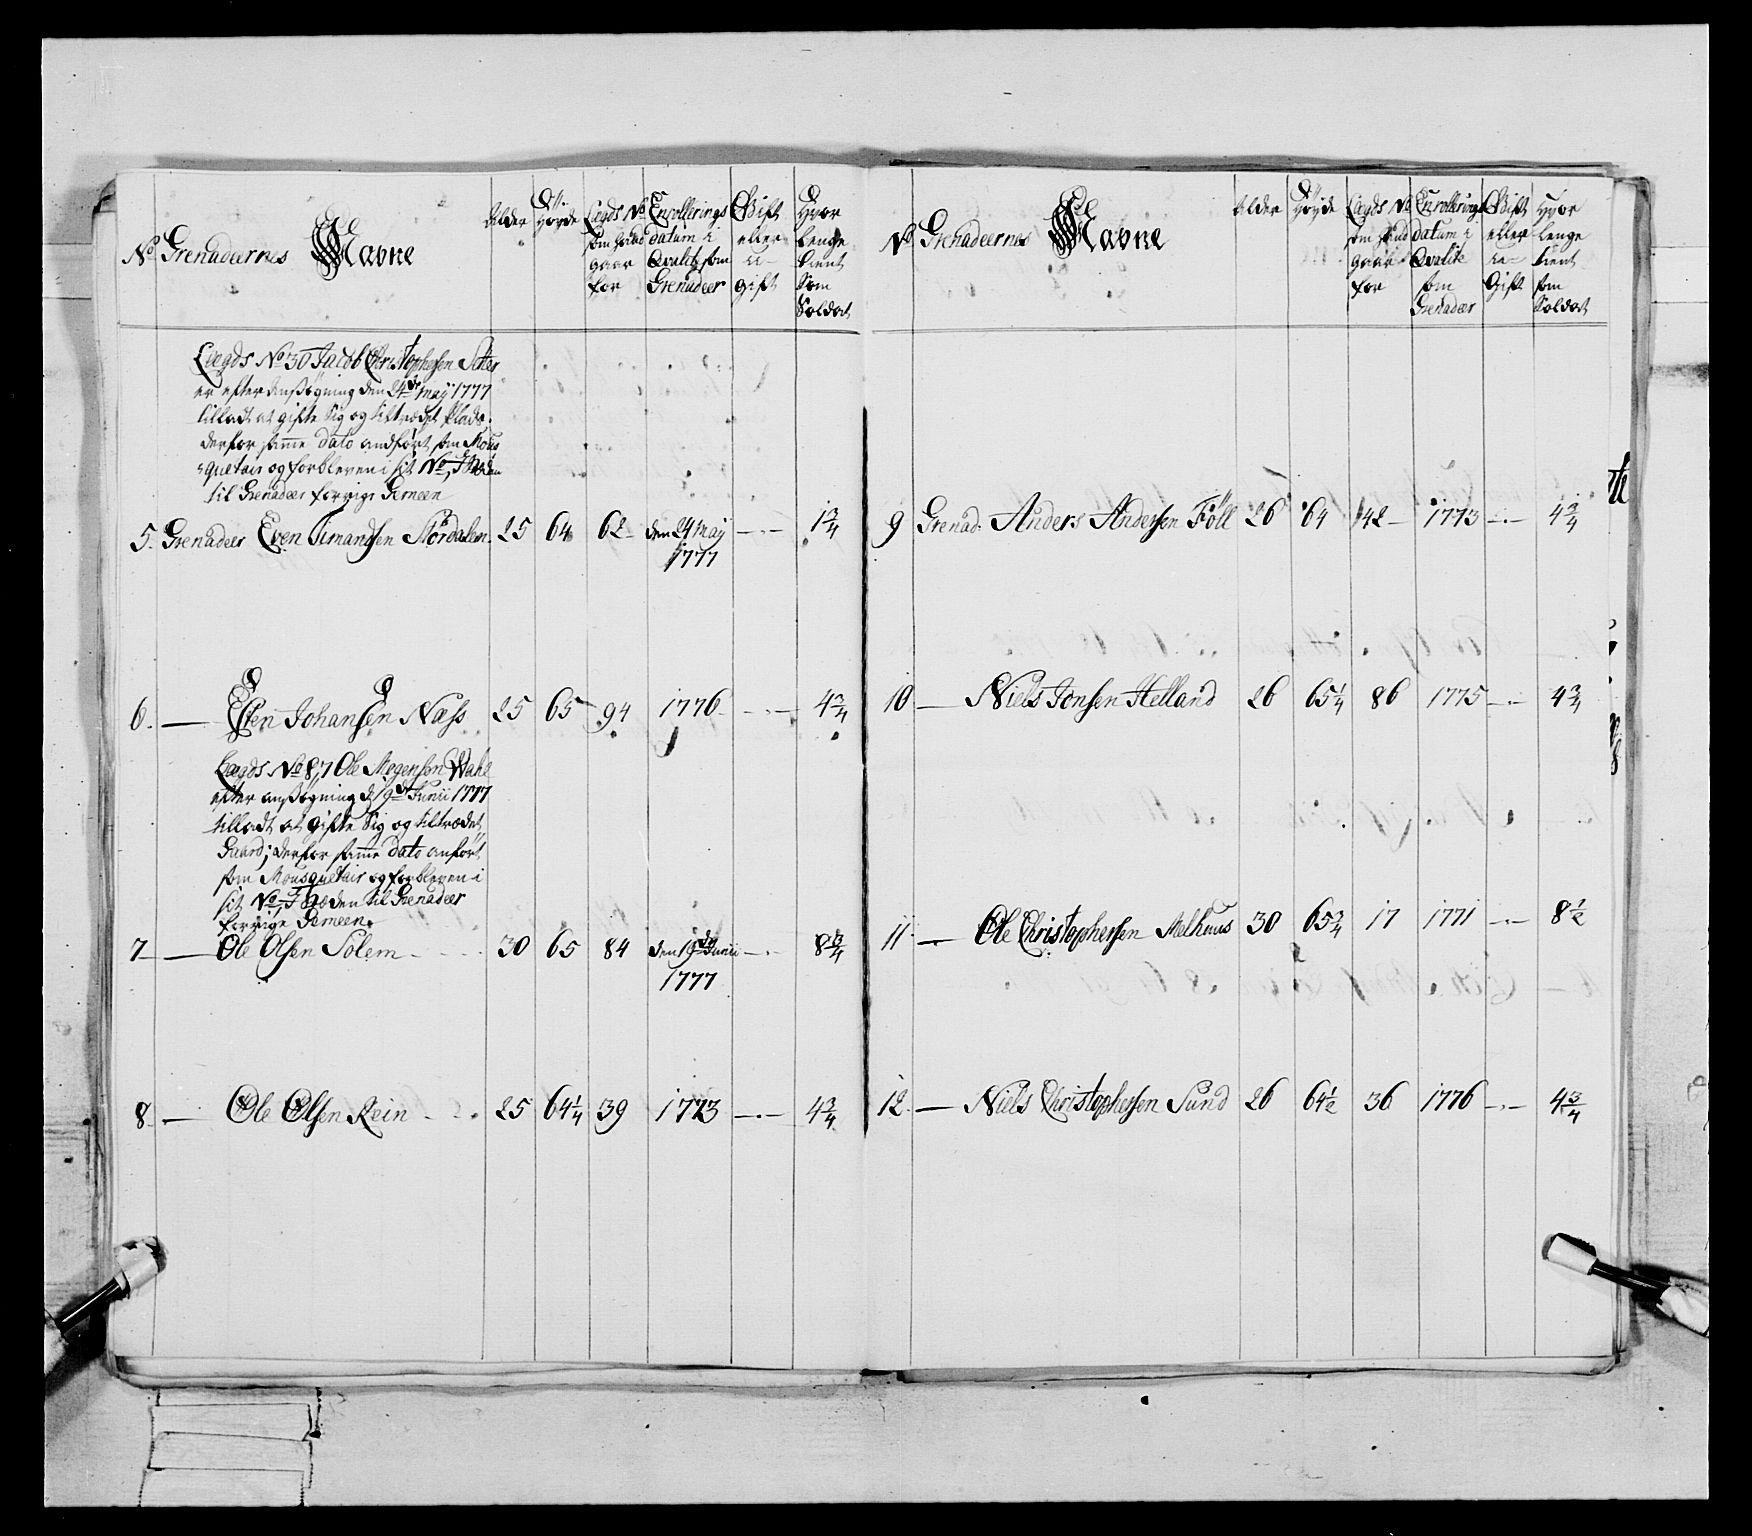 No. Grenadeernes Navne
Alder
Høyde
Lægds No som hand gaar for
Enrollerings datum i Qvalite som Grenadeer
Gift eller u- gift
Hvor lenge tient Som Soldat
Lægds No 30 Jacob Christophersen Sæter
er efter Ansøgning den 24de maij 1777
tilladt at gifte Sig og tiltrædet Plads.
derfor samme dato andført som Mous
quetair og forbleven i sit No,
til Grenadeer forrige Gemeen
5. Grenadeer Even Simandsen Nordalem 25 64 62 den 24 maij 1777 -.- 1 3/4
6. — Esten Johansen Næss 25 65 94 1776 -.- 4 3/4
Lægds No 87 Ole Mogensen Wahl
efter ansøgning d 19de Junii 1777
tilladt at gifte Sig og tiltrædet
Gaard; derfor samme dato anført
som Mousquetair og forbleven i
sit No, til Grenadeer
forrige Gemeen.
7 — Ole Olsen Solem 30 65 84 den 19de Junii 1777 -.- 8 3/4
8. — Ole Olsen Rein 25 64 1/4 39 1773 -.- 4 3/4
No Grenadeernes Navne
Alder
Høyde
Lægds No som hand gaar for
Enrollerings datum i Qvalite som Grenadeer
Gift eller u- Gift
Hvor lenge tient som Soldat
9 Grenad. Anders Andersen Föll 26 64 42 1773 -.- 4 3/4
10 — Niels Jonsen Helland 26 65 1/4 86 1775 -.- 4 3/4
11 — Ole Christophersen Melhuus 30 65 3/4 17 1771 -.- 8 1/2
12. — Niels Christophersen Sund 26 64 1/2 36 1776 -.- 4 3/4